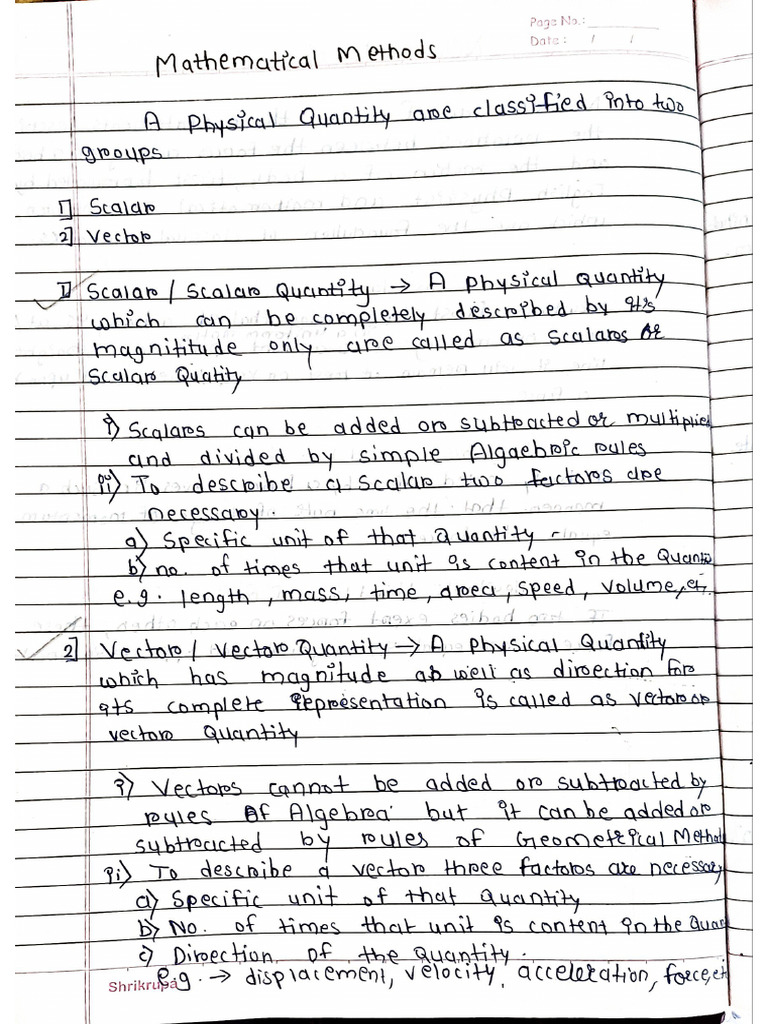 Page No.:
Date: / /
Mathematical Methods
A Physical Quantity are classified into two
groups
1] Scalar
2] Vector
1] Scalar / Scalar Quantity → A Physical Quantity
which can be completely described by it's
magnititude only are called as Scalars or
Scalar Quatity
i) Scalars can be added or subtracted or multiplied
and divided by simple Algaebric rules
ii) To describe a scalar two factors are
necessary.
a) Specific unit of that Quantity -
b) no. of times that unit is content in the Quanti
e.g. length, mass, time, area, speed, volume, etc.
2] Vector / Vector Quantity → A Physical Quantity
which has magnitude as well as direction for
its complete representation is called as vector or
vector Quantity
i) Vectors cannot be added or subtracted by
rules of Algebra but it can be added or
subtracted by rules of Geometrical Metho
ii) To describe a vector three factors are necessary
a) Specific unit of that Quantity
b) No. of times that unit is content in the Quan
c) Direction of the Quantity.
e.g. → displacement, velocity, acceleration, force, et
Shrikrupa